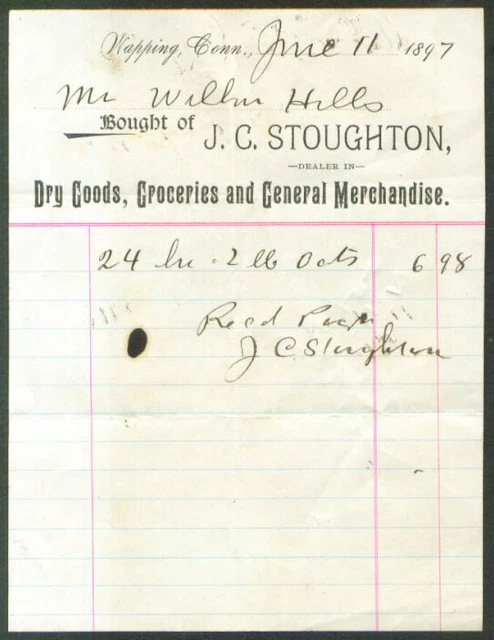 Wapping, Conn., June 11 1897
Mr Wilbur Hills
Bought of J. C. STOUGHTON,
—DEALER IN—
Dry Goods, Groceries and General Merchandise.
24 bu. 2 lb Oats 6 98
Recd Paym
J C Stoughton